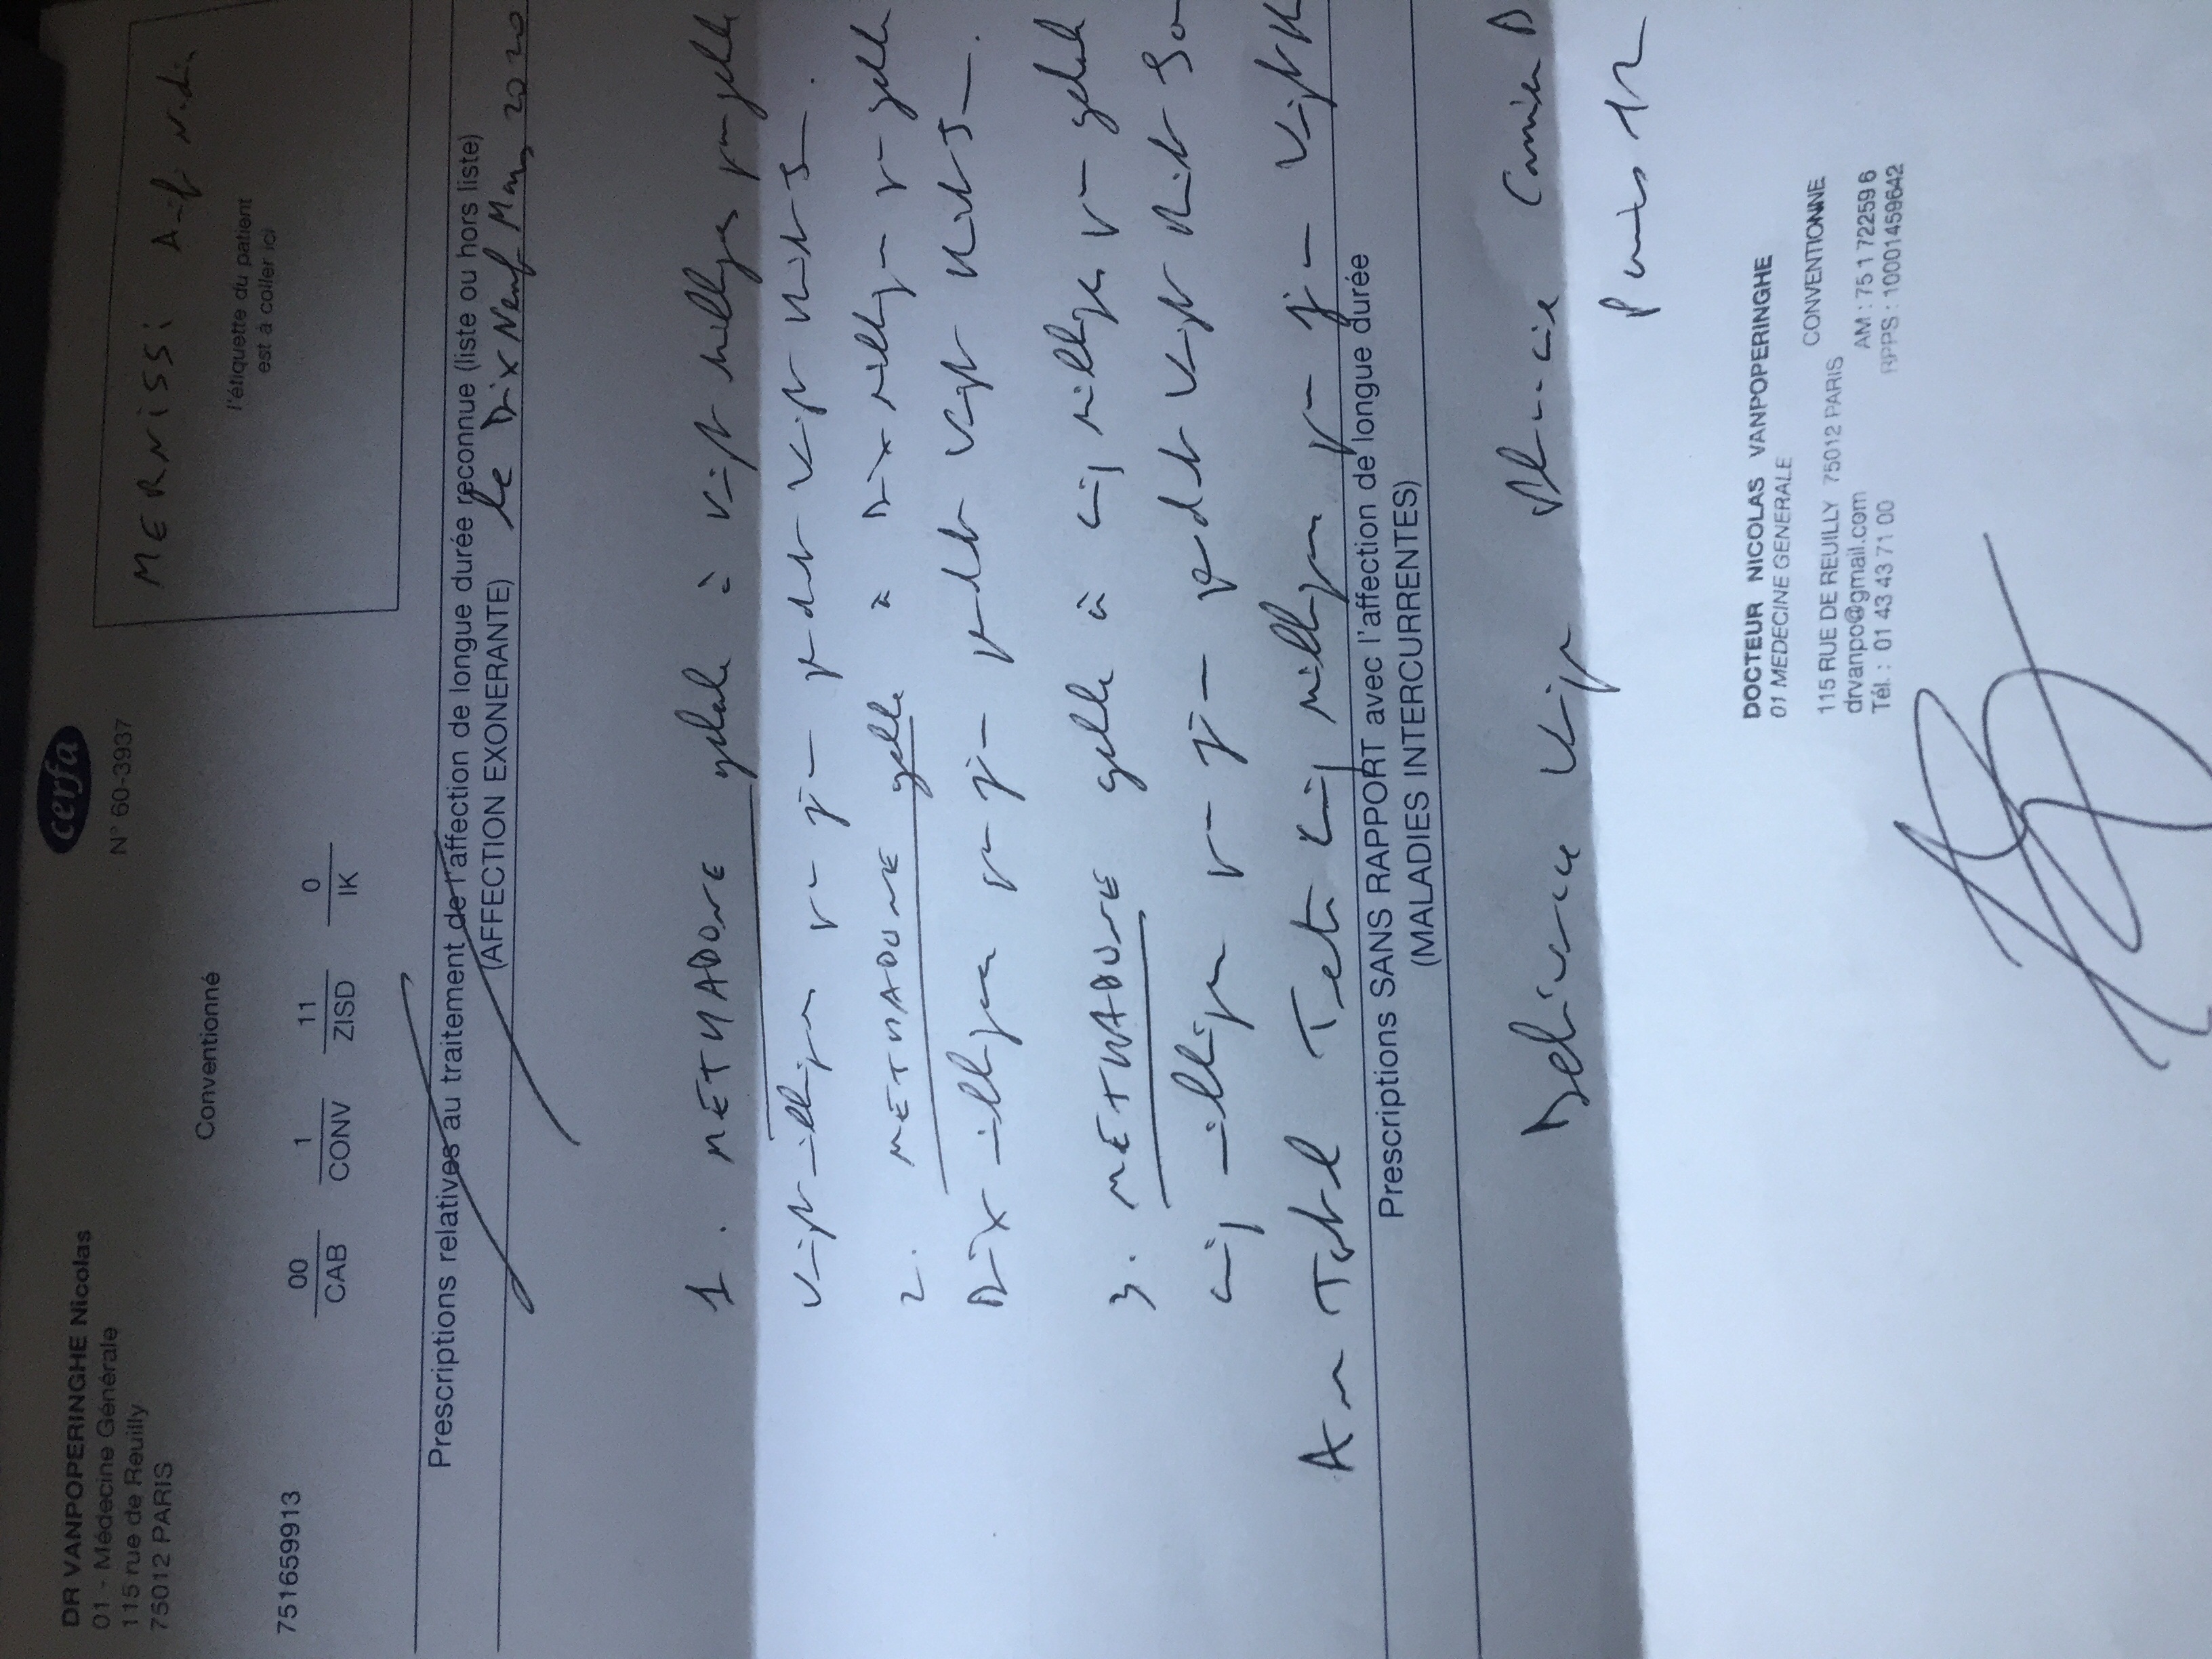 DR VANPOPERINGHE Nicolas
01 - Médecine Générale
115 rue de Reuilly
75012 PARIS
cerfa
N° 60-3937
MERNiSSi
l'étiquette du patient
est à coller ici
Conventionné
751659913
00 1 11 0
CAB CONV ZISD IK
Prescriptions relatives au traitement de l'affection de longue durée reconnue (liste ou hors liste)
(AFFECTION EXONERANTE) le Dix Neuf Mars 2020
1. METHADONE gelule à vingt milligrammes par gelule
vingt milligrammes par jour pendant vingt huit Jours.
2. METHADONE gelule à Dix milligrammes par gelule
Dix milligrammes par jour pendant vingt huit Jours.
3. METHADONE gelule à cinq milligrammes par gelule
cinq milligrammes par jour pendant vingt huit Jou
Au Total Trente Cinq milligrammes par jour Vingt
Prescriptions SANS RAPPORT avec l'affection de longue durée
(MALADIES INTERCURRENTES)
Delivrance Pharmacie
Paris 12
DOCTEUR NICOLAS VANPOPERINGHE
01 MEDECINE GENERALE
CONVENTIONNE
115 RUE DE REUILLY 75012 PARIS
drvanpo@gmail.com AM : 75 1 72259 6
Tél. : 01 43 43 71 00 RPPS : 10001459642